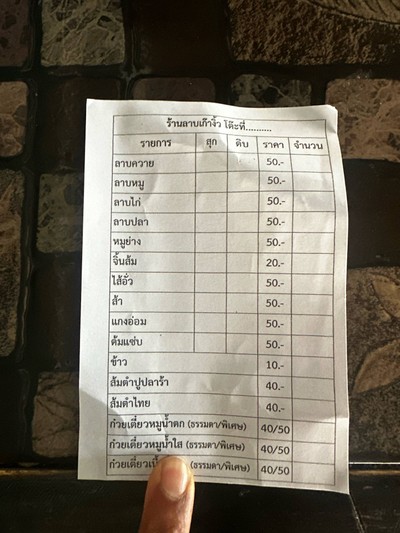 ร้านลาบเก๊างิ้ว โต๊ะที่..........
รายการ สุก ดิบ ราคา จำนวน
ลาบควาย 50.-
ลาบหมู 50.-
ลาบไก่ 50.-
ลาบปลา 50.-
หมูย่าง 50.-
จิ้นส้ม 20.-
ไส้อั่ว 50.-
ส้า 50.-
แกงอ่อม 50.-
ต้มแซ่บ 50.-
ข้าว 10.-
ส้มตำปูปลาร้า 40.-
ส้มตำไทย 40.-
ก๋วยเตี๋ยวหมูน้ำตก (ธรรมดา/พิเศษ) 40/50
ก๋วยเตี๋ยวหมูน้ำใส (ธรรมดา/พิเศษ) 40/50
(ธรรมดา/พิเศษ) 40/50